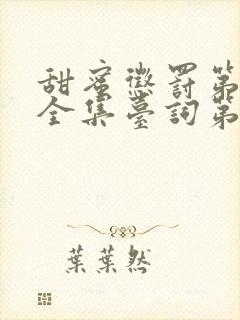 甜蜜懲罰第
全集臺詞第
葉葉然